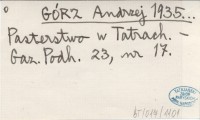 GÓRZ Andrzej 1935...
Pasterstwo w Tatrach. –
Gaz. Podh. 23, nr 17.